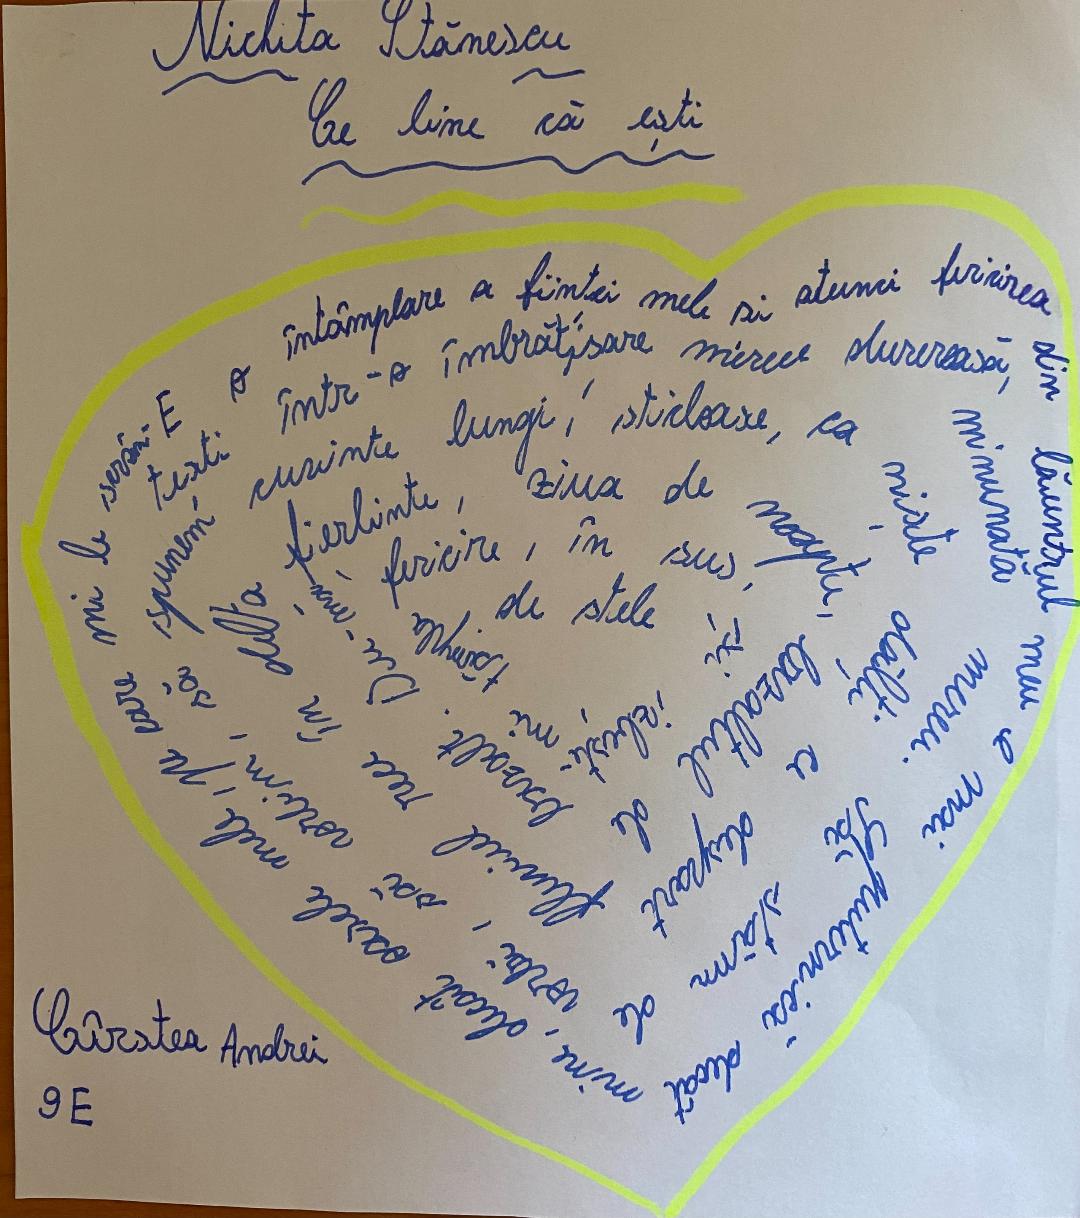 Nichita Stănescu
Ce bine că ești
E o întâmplare a ființei mele si atunci fericirea
din lăuntrul meu e mai
puternică decât
mine, decât oasele mele, pe care mi le
într-o îmbrățișare mereu dureroasă,
minunată mereu.
Să stăm de
vorbă, să vorbim, să spunem
cuvinte lungi, sticloase, ca
niște dălți ce despart
fluviul rece în delta
fierbinte, ziua de noapte,
bazaltul de
bazalt. Du-mă,
fericire, în sus,
și izbește mi
tâmpla
de stele
Cârstea Andrei
9E